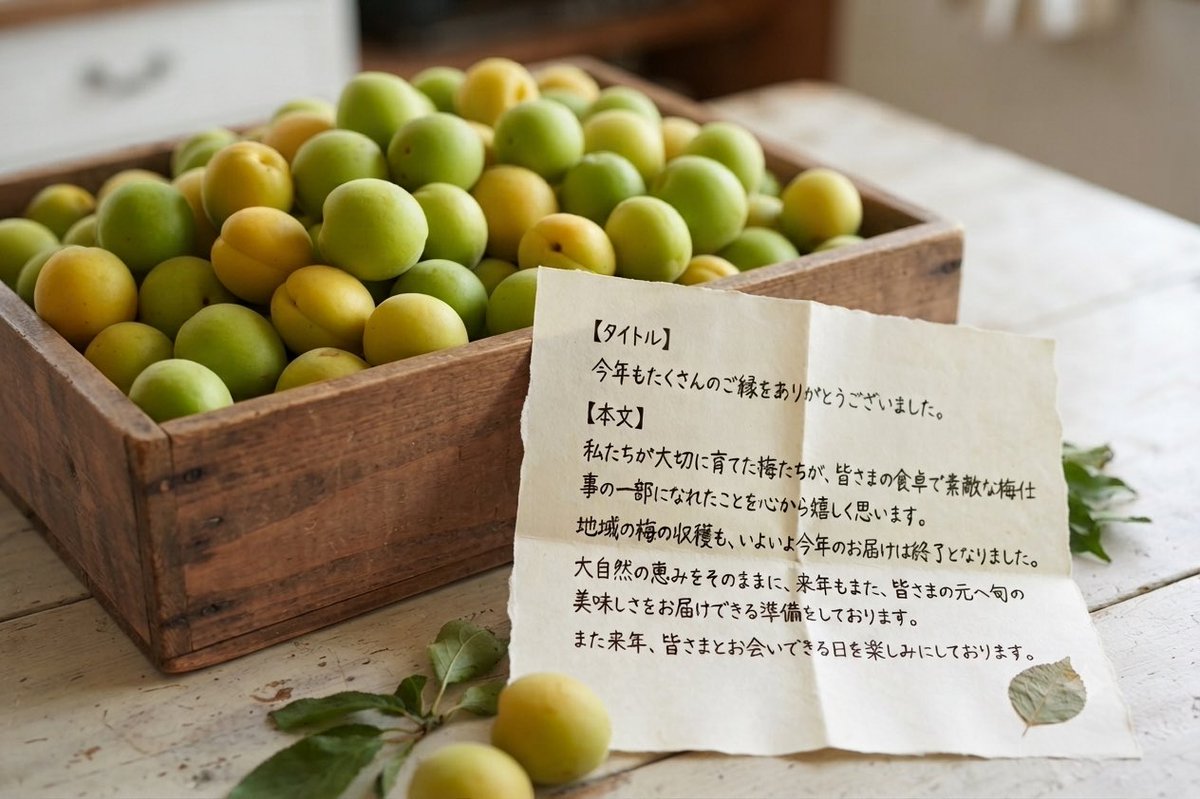 【タイトル】
今年もたくさんのご縁をありがとうございました。
【本文】
私たちが大切に育てた梅たちが、皆さまの食卓で素敵な梅仕
事の一部になれたことを心から嬉しく思います。
地域の梅の収穫も、いよいよ今年のお届けは終了となりました。
大自然の恵みをそのままに、来年もまた、皆さまの元へ旬の
美味しさをお届けできる準備をしております。
また来年、皆さまとお会いできる日を楽しみにしております。